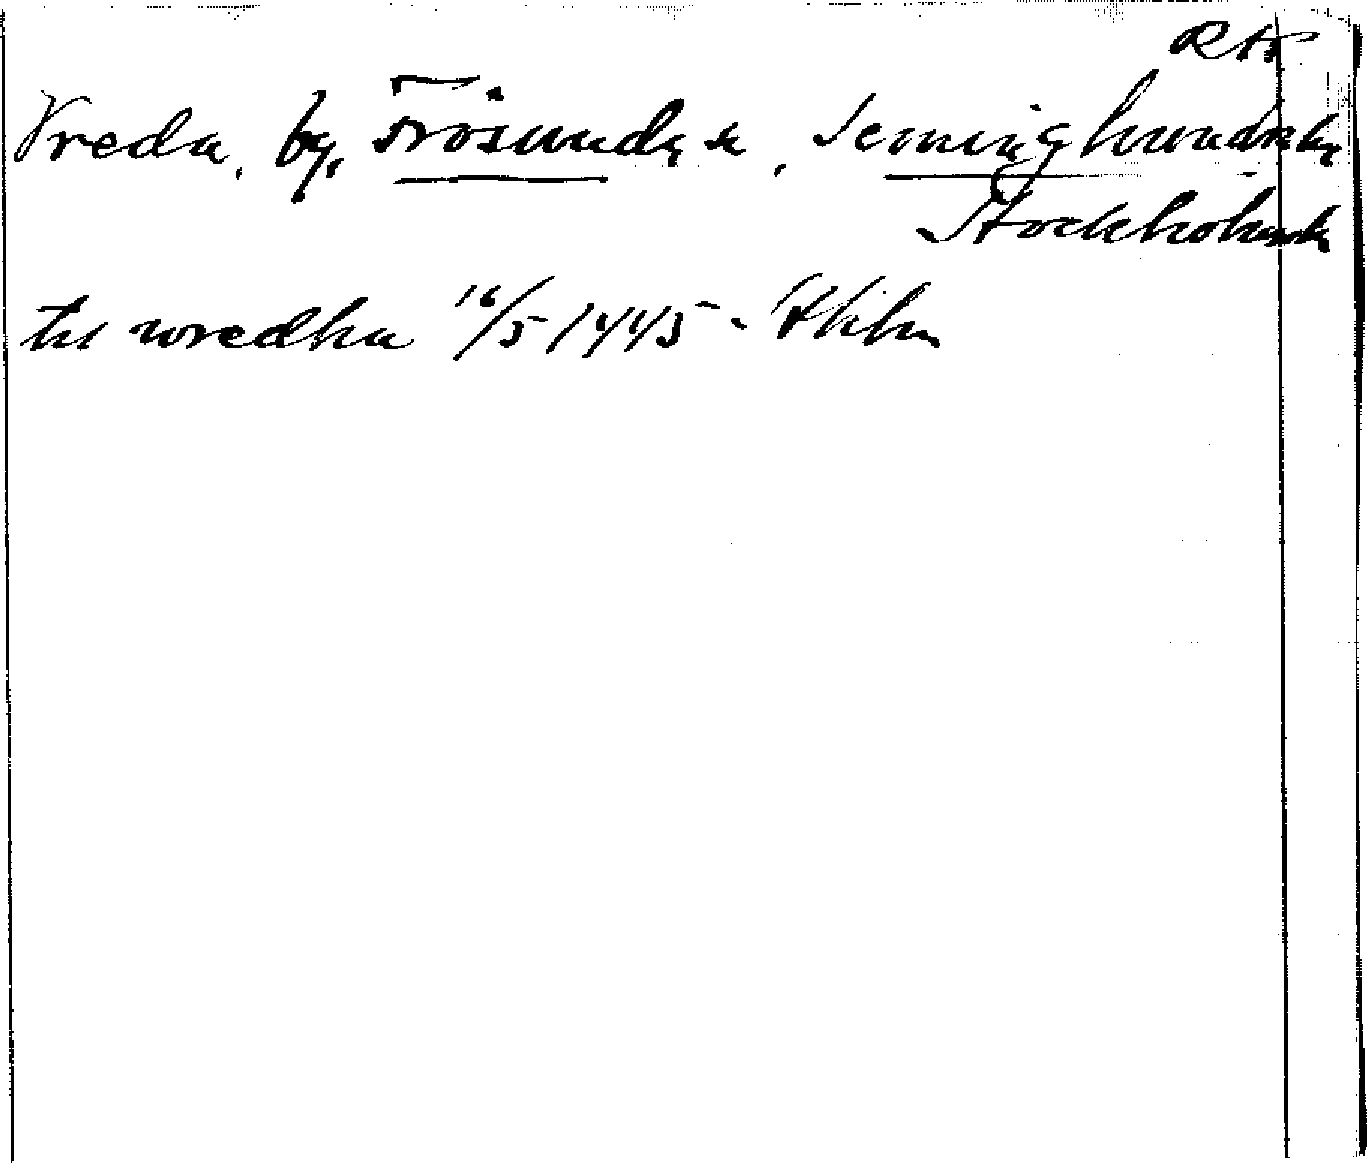 RAp
Vreda, by, Frösunda sn, Seminghundra hd,
Stockholms l.
til wredha 16/5 1445 - Sthlm